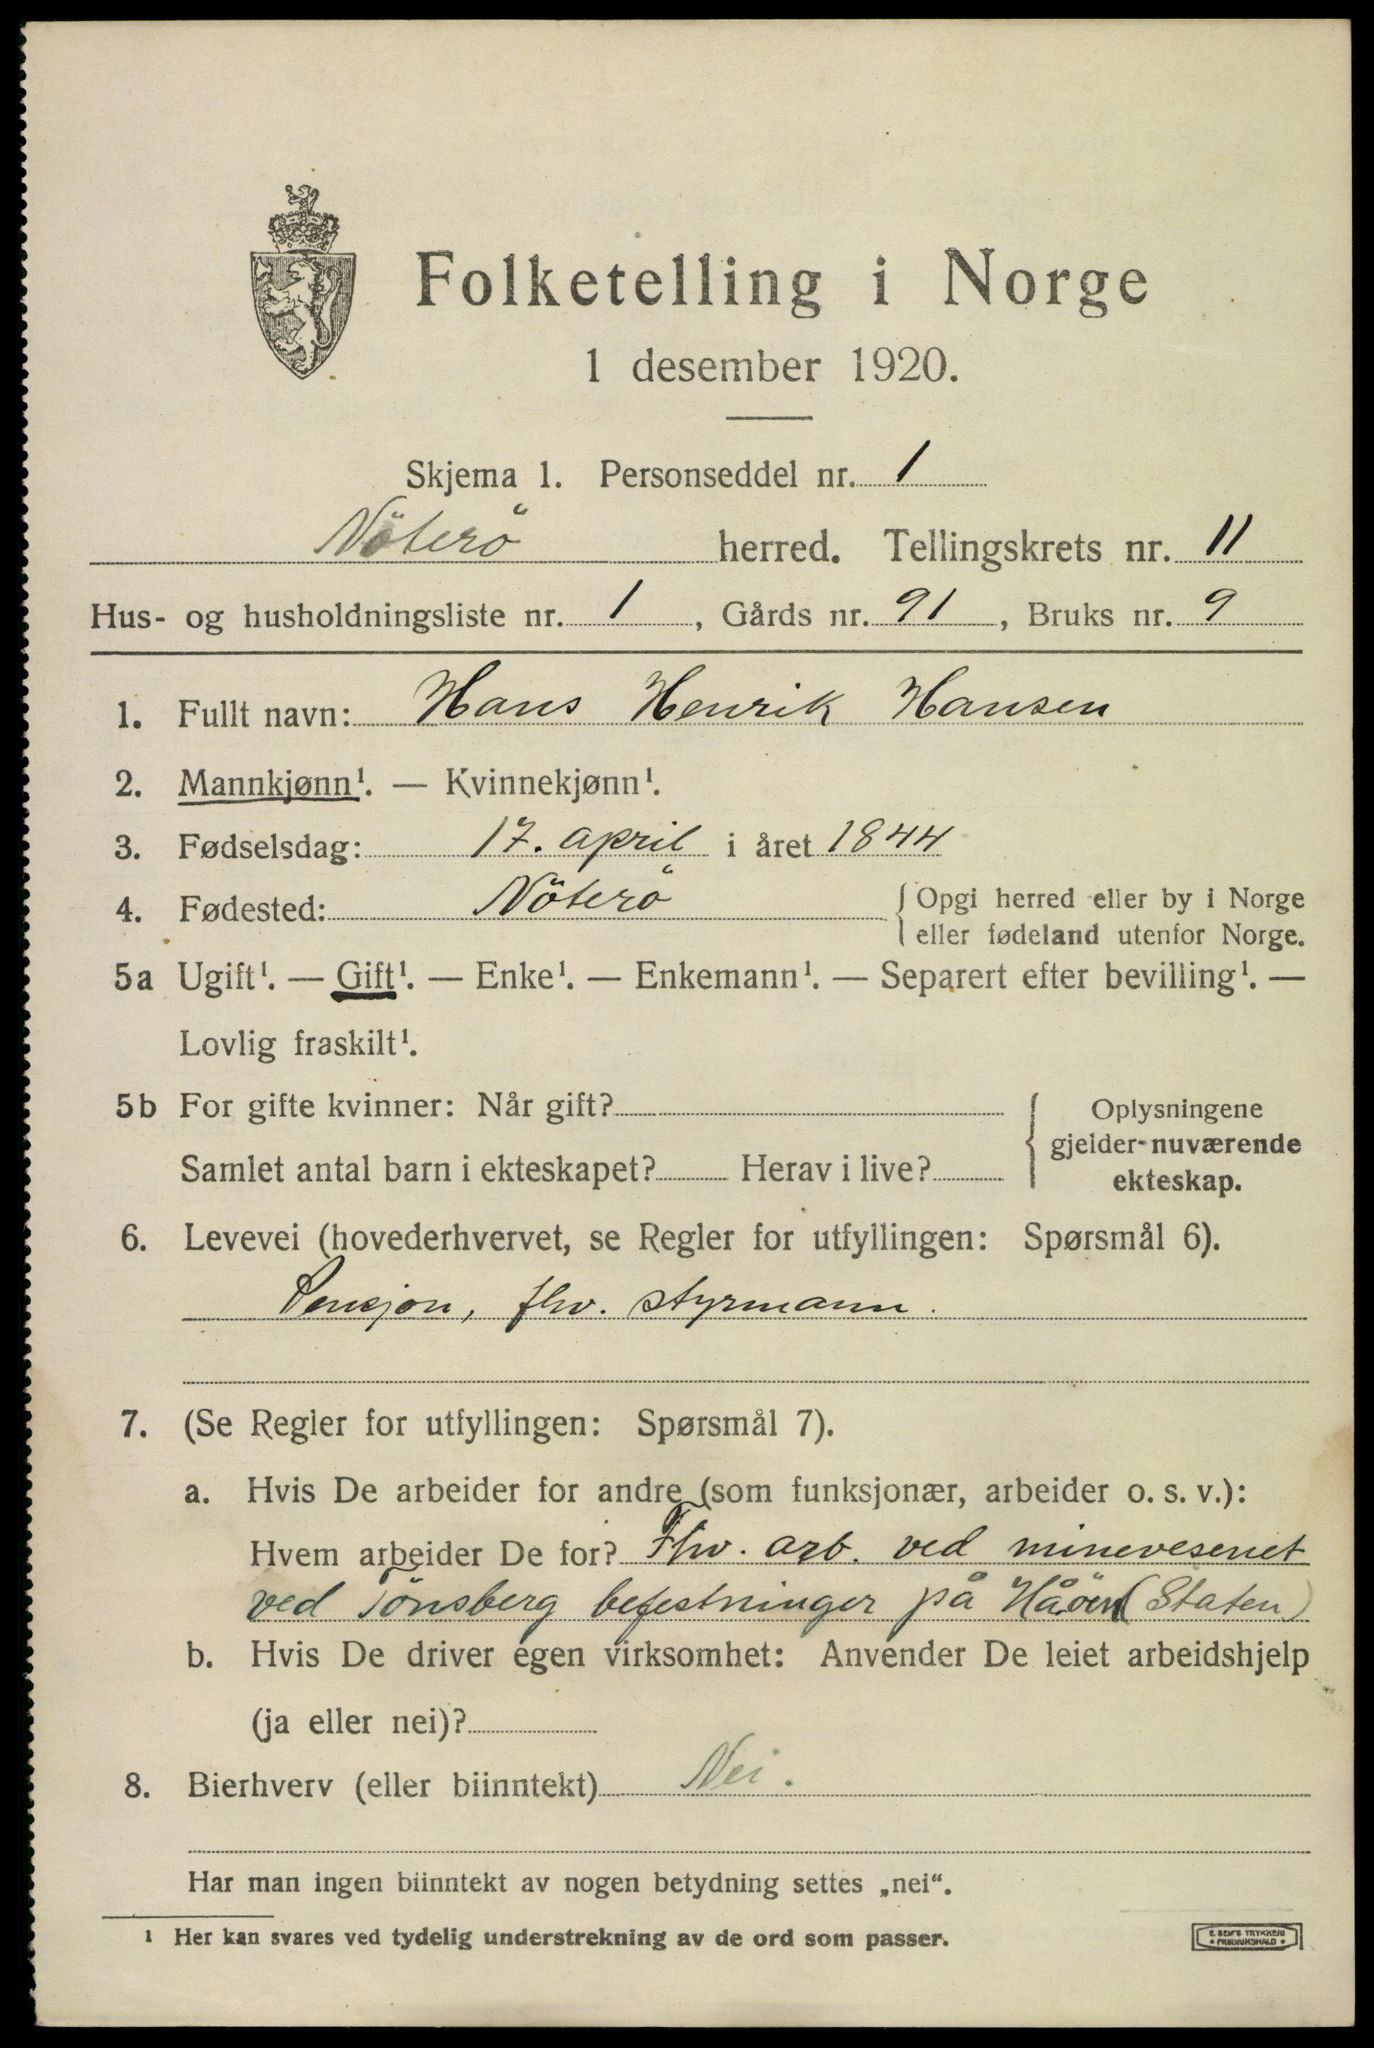 Folketelling i Norge
1 desember 1920.
Skjema 1. Personseddel nr. 1
Nöterö herred. Tellingskrets nr. 11
Hus- og husholdningsliste nr. 1, Gårds nr. 91, Bruks nr. 9
1. Fullt navn: Hans Henrik Hansen
2. Mannkjønn¹. — Kvinnekjønn¹.
3. Fødselsdag: 17. april i året 1844
4. Fødested: Nöterö { Opgi herred eller by i Norge
eller fødeland utenfor Norge.
5a Ugift¹. — Gift¹. — Enke¹. — Enkemann¹. — Separert efter bevilling¹. —
Lovlig fraskilt¹.
5b For gifte kvinner: Når gift?
Samlet antal barn i ekteskapet? Herav i live?
{ Oplysningene
gjelder nuværende
ekteskap.
6. Levevei (hovederhvervet, se Regler for utfyllingen: Spørsmål 6).
Pensjon, fhv. styrmann.
7. (Se Regler for utfyllingen: Spørsmål 7).
a. Hvis De arbeider for andre (som funksjonær, arbeider o. s. v.):
Hvem arbeider De for? Fhv. arb. ved minevesenet
ved Tönsberg befestninger på Håöen (Staten)
b. Hvis De driver egen virksomhet: Anvender De leiet arbeidshjelp
(ja eller nei)?
8. Bierhverv (eller biinntekt) Nei.
Har man ingen biinntekt av nogen betydning settes „nei“.
¹ Her kan svares ved tydelig understrekning av de ord som passer.
E. SEM'S TRYKKERI
• FREDRIKSHALD •